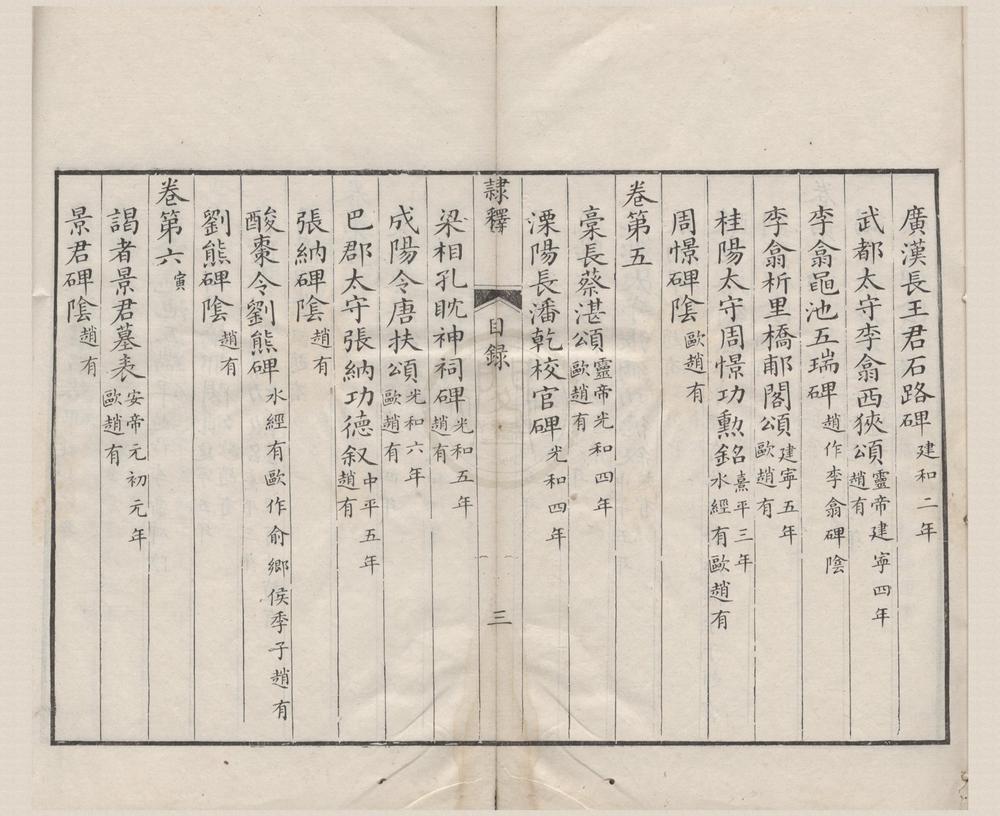 廣漢長王君石路碑 建和二年
武都太守李翕西狹頌 靈帝建寧四年 趙有
李翕黽池五瑞碑 趙作李翕碑陰
李翕析里橋郙閣頌 建寧五年 歐趙有
桂陽太守周憬功勳銘 熹平三年 水經有歐趙有
周憬碑陰 歐趙有
卷第五
稾長蔡湛頌 靈帝光和四年 歐趙有
溧陽長潘乾校官碑 光和四年
隸釋 目録 三
梁相孔耽神祠碑 光和五年 趙有
成陽令唐扶頌 光和六年 歐趙有
巴郡太守張納功德叙 中平五年 趙有
張納碑陰 趙有
酸棗令劉熊碑 水經有歐作俞鄉侯季子趙有
劉熊碑陰 趙有
卷第六 寅
謁者景君墓表 安帝元初元年 歐趙有
景君碑陰 趙有